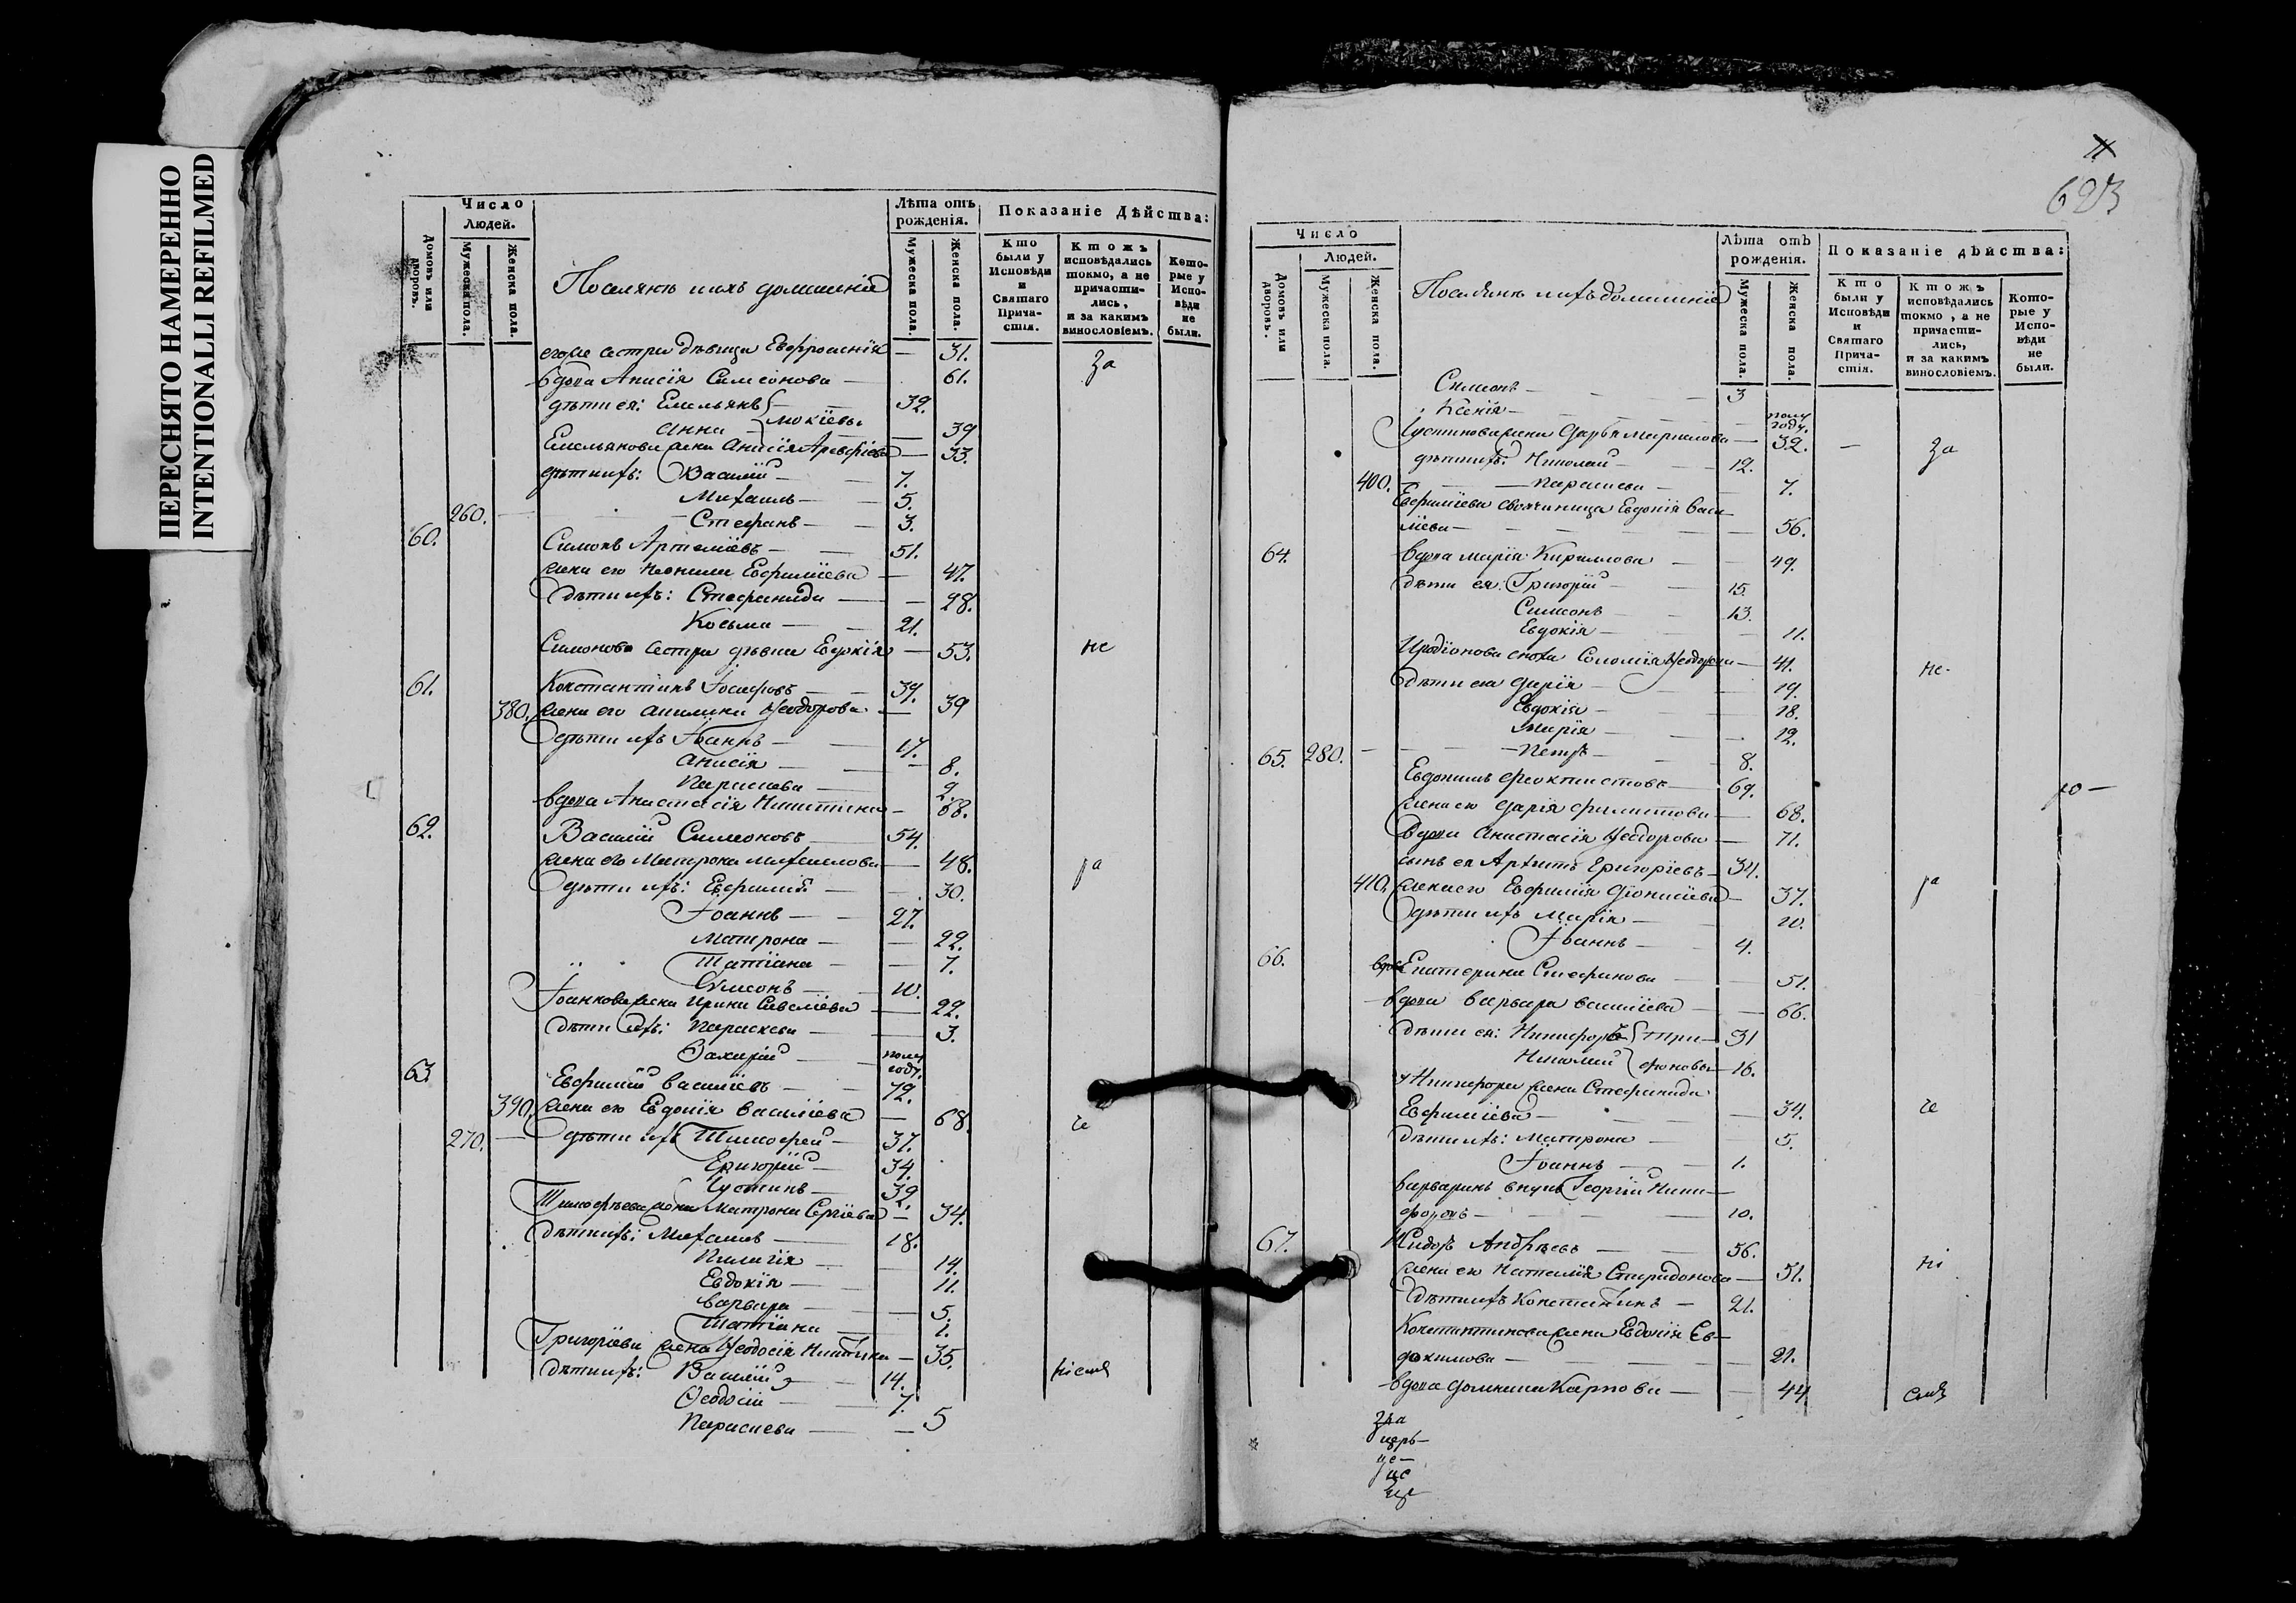 ПЕРЕСНЯТО НАМЕРЕННО
INTENTIONALLI REFILMED
Число
Людей.
Домовъ или дворовъ.
Мужеска пола.
Женска пола.
Поселянъ ихъ домашнiе
Лѣта отъ рожденiя.
Мужеска пола.
Женска пола.
Показанiе Дѣйства:
Кто были у Исповѣди и Святаго Прича-стiя.
Ктожъ исповѣдались токмо, а не причасти-лись, и за какимъ винословiемъ.
Кото-рые у Испо-вѣди не были.
сестра дѣвица Евфросинiя — 31.
за
вдова Анисiя Симеонова — 61.
дѣти ея: Емельянъ — 32.
Мокiевы
Анна — 39
Емельянова жена Анисiя — 33.
дѣти ихъ: Василiй — 7.
Михаилъ — 5.
260. Стефанъ — 3.
60. Симонъ Артемiевъ — 51.
жена его Неонила Евфимiева — 47.
дѣти ихъ: Стефанида — 28.
Косьма — 21.
Симонова сестра дѣвка Евдокiя — 53.
не
61. Константинъ Iосифовъ — 39.
380. жена его Акилина Ѳеодорова — 39
дѣти ихъ Iоаннъ — 17.
Анисiя — 8.
Параскева — 2.
вдова Анастасiя Никитина — 68.
62. Василiй Симеоновъ — 54.
жена его Матрона Михаилова — 48.
ра
дѣти ихъ: Евфимiя — 30.
Iоаннъ — 27.
Матрона — 22.
Татiана — 7.
Симеонъ — 10.
Iоаннова жена Ирина Савелiева — 22.
дѣти ихъ: Параскева — 3.
Захарiй — полу году.
63. Евфимiй Василiевъ — 72.
390. жена его Евдокiя Василiева — 68.
че
270. дѣти ихъ Тимофей — 37.
Григорiй — 34
Iустинъ — 32.
Тимофѣева жена Матрона Сергiева — 34.
дѣти ихъ: Михаилъ — 18.
Пелагiя — 14.
Евдокiя — 11.
Варвара — 5.
Татiана — 1.
Григорiева жена Ѳеодосiя Никитина — 35.
дѣти ихъ: Василiй — 14.
Ѳеодосiй — 7.
Параскева — 5
623
Число
Людей.
Домовъ или дворовъ.
Мужеска пола.
Женска пола.
Поселянъ ихъ домашнiе
Лѣта отъ рожденiя.
Мужеска пола.
Женска пола.
Показанiе дѣйства:
Кто были у Исповѣди и Святаго Прича-стiя.
Ктожъ исповѣдались токмо, а не причасти-лись, и за какимъ винословiемъ.
Кото-рые у Испо-вѣди не были.
Симеонъ — 3
Ксенiя — полу году.
Iустинова жена Дарья — 32.
за
дѣти ихъ: Николай — 12.
400. — Параскева — 7.
Евфимiева свояченица Евдокiя Васи-
лiева — 56.
64. вдова Марiя Кириллова — 49.
дѣти ея: Григорiй — 15.
Симеонъ — 13.
Евдокiя — 11.
Иродiонова сноха Соломiя Ѳеодорова — 41.
не
дѣти ея Дарiя — 19.
Евдокiя — 18.
Марiя — 12.
65. 280. — Петръ — 8.
Евдокимъ Феоктистовъ — 69.
жена его Дарiя — 68.
вдова Анастасiя Ѳеодорова — 71.
сынъ ея Архипъ Григорiевъ — 34.
410. жена его Евфимiя Дiонисiева — 37.
ра
дѣти ихъ Марiя — 10.
Iоаннъ — 4.
66. вдова Екатерина Стефанова — 51.
вдова Варвара Василiева — 66.
дѣти ея: Никифоръ Три- — 31
Николай фоновы — 16.
Никифора жена Стефанида
Евфимiева — 34.
че
дѣти ихъ: Матрона — 5.
Iоаннъ — 1.
Варваринъ внукъ Георгiй Ники-
форовъ — 10.
67. Исидоръ Андрѣевъ — 56.
жена его Наталiя Спиридонова — 51.
нi
дѣти ихъ Константинъ — 21.
Константинова жена Евдокiя Ев-
докимова — 21.
вдова Домникiя Карпова — 44